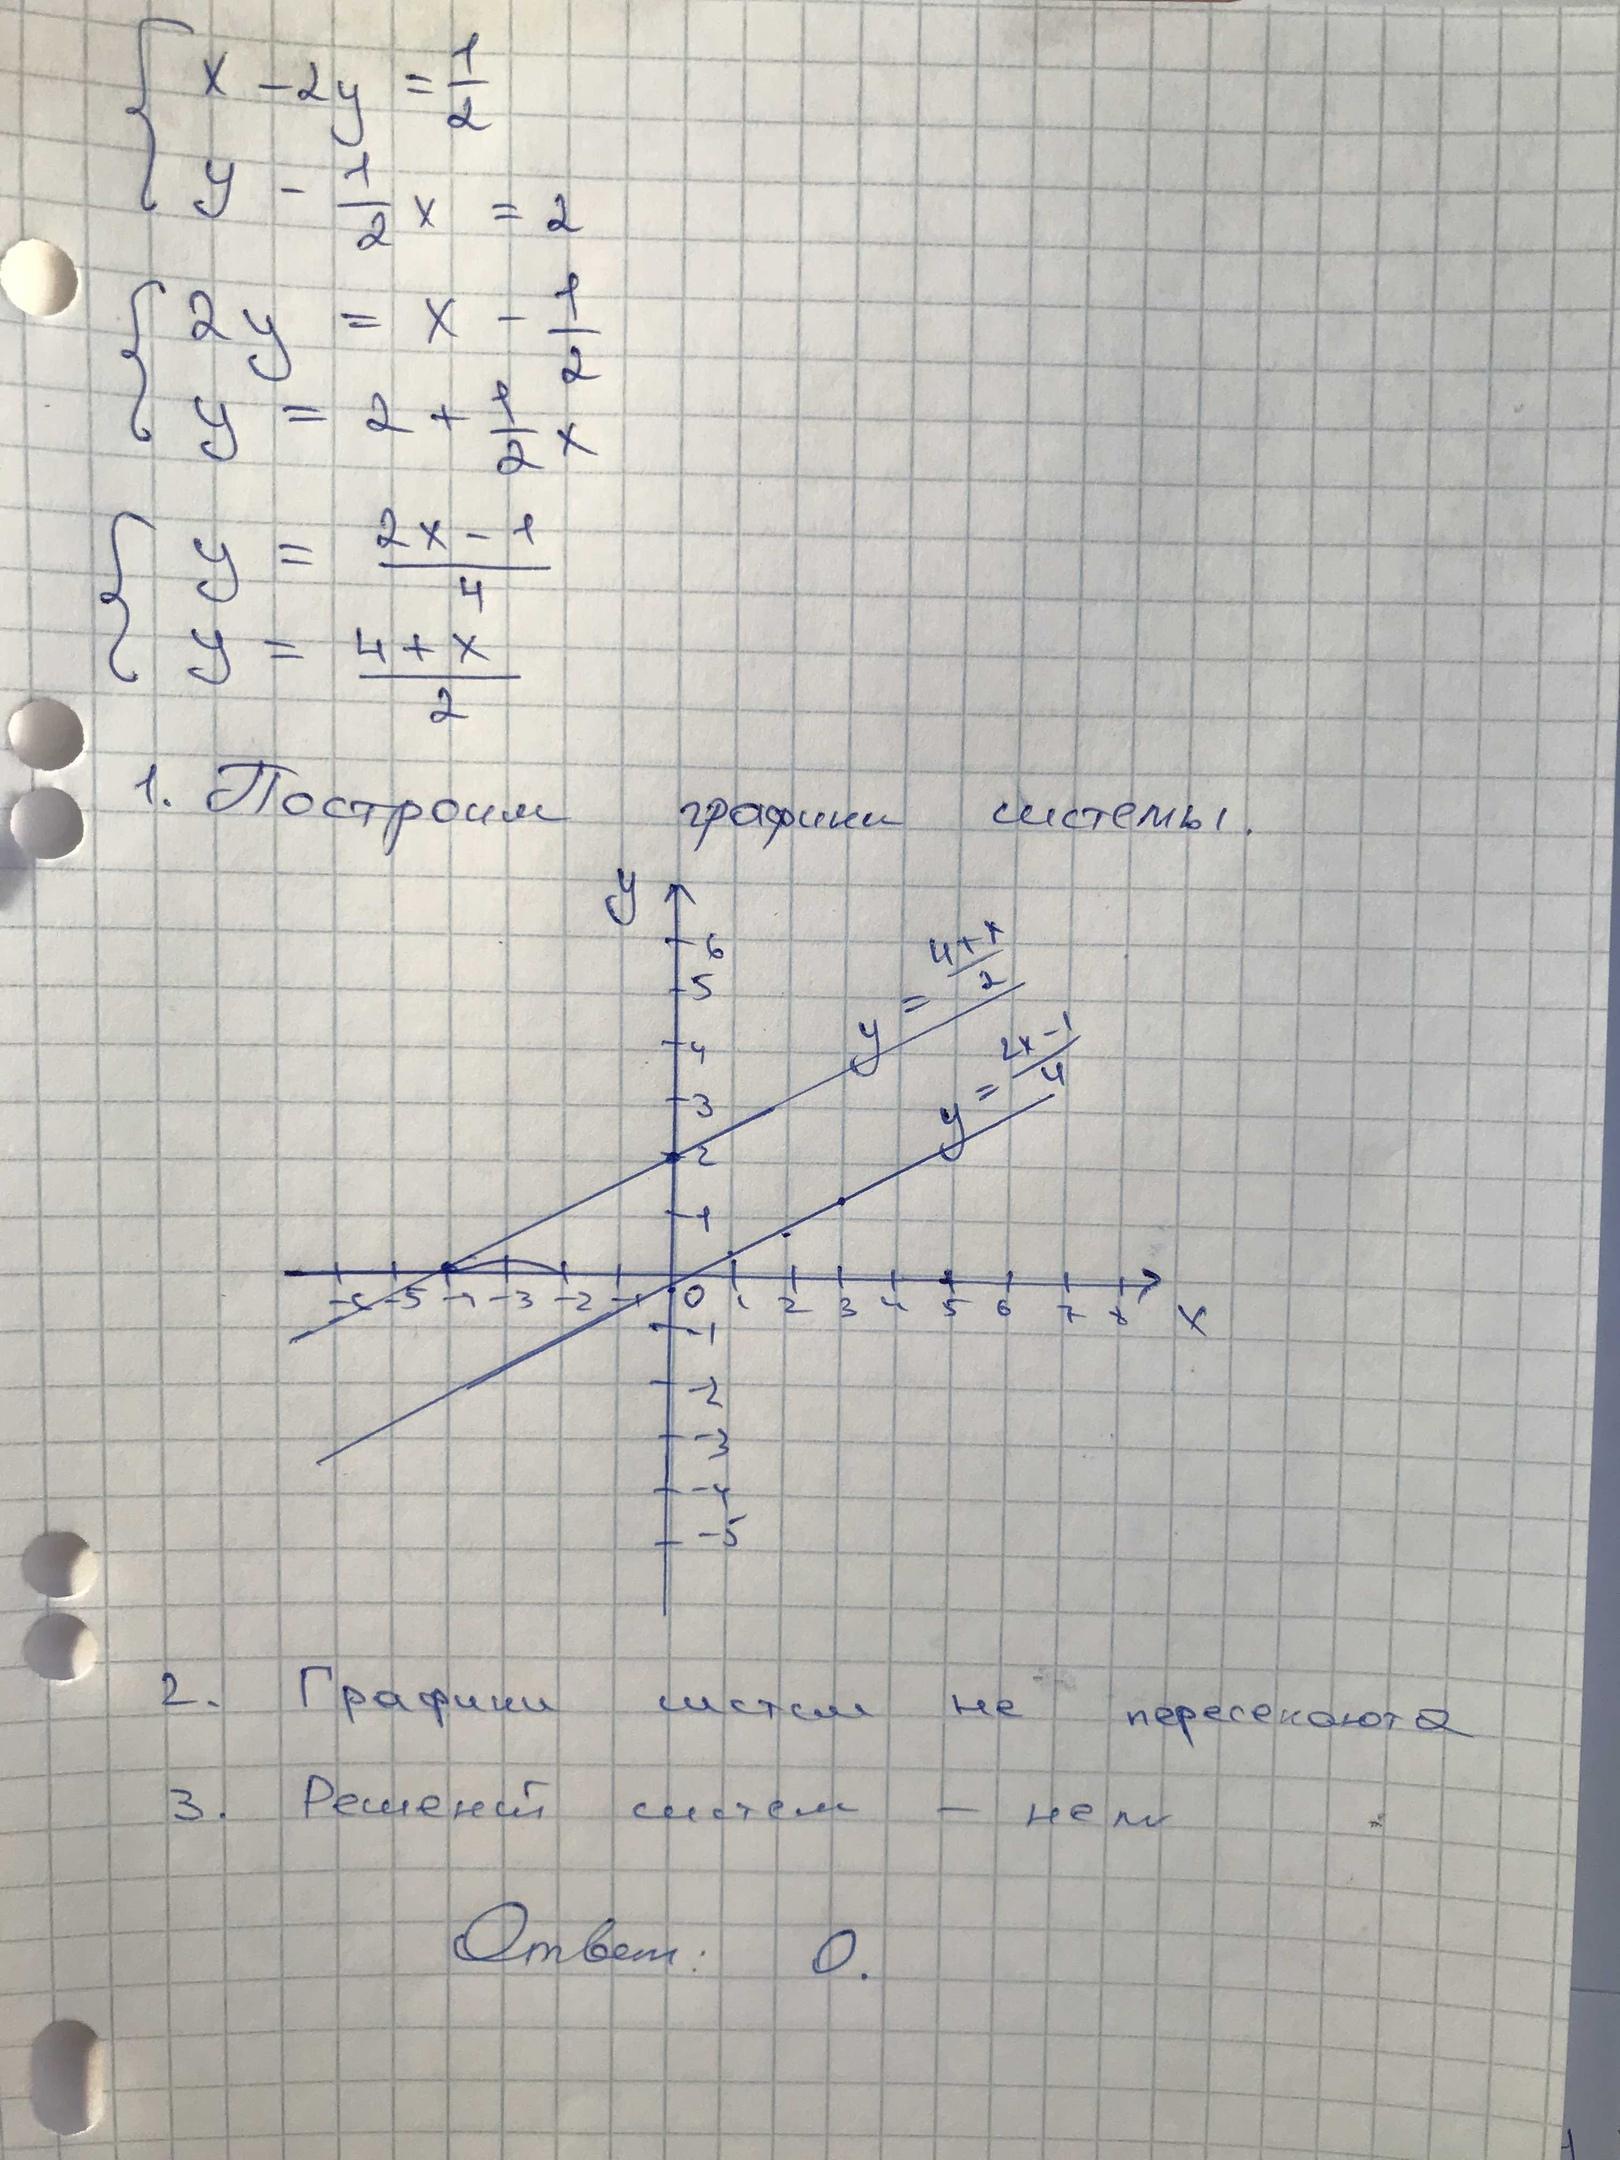 x - 2y = 1/2
y - 1/2 x = 2
2y = x - 1/2
y = 2 + 1/2 x
y = (2x - 1)/4
y = (4 + x)/2
1. Построим графики системы.
y
6
5
y = (4+x)/2
4
y = (2x-1)/4
3
2
1
-6 -5 -4 -3 -2 -1 0 1 2 3 4 5 6 7 8 x
-1
-2
-3
-4
-5
2. Графики систем не пересекаются
3. Решений систем - нет
Ответ: 0.